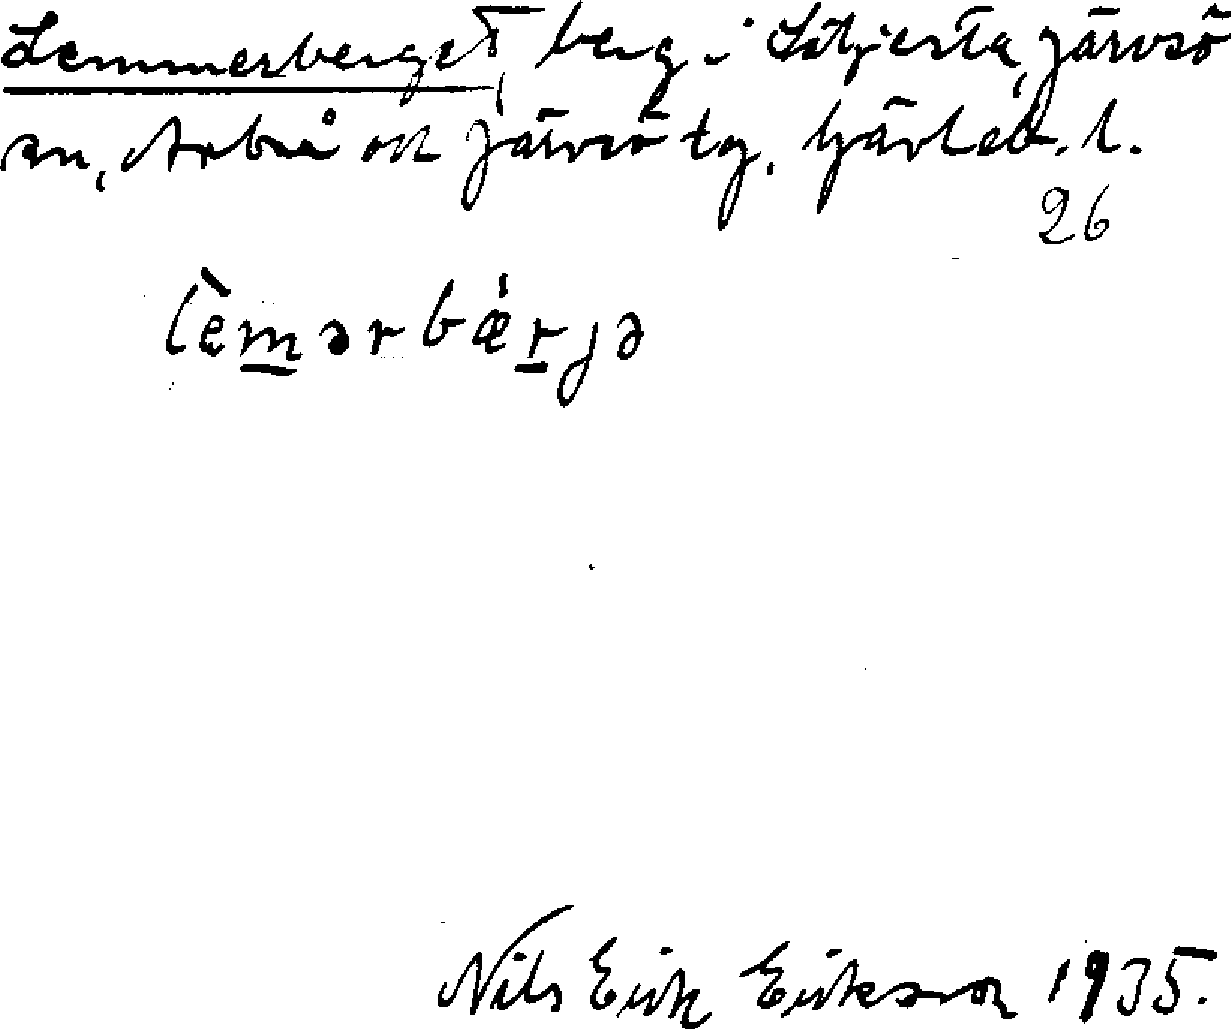 Lemmerberget, berg i Låtjesta, Järvsö
sn, Arbrå och Järvsö tg. Gävleb. l.
26
lèmərbǽrjə
Nils Erik Eriksson 1935.